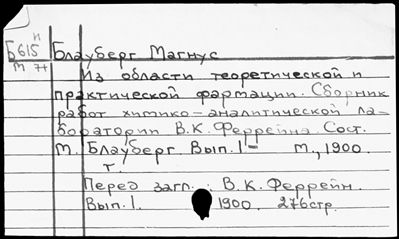 Б615 Блауберг Магнус
Из области теоретической и
практической фармации. Сборник
работ химико-аналитической ла-
боратории В.К. Феррейна. Сост.
М. Блауберг. Вып. 1- М., 1900.
т.
Перед загл.: В.К. Феррейн.
Вып. 1. 1900. 276 стр.